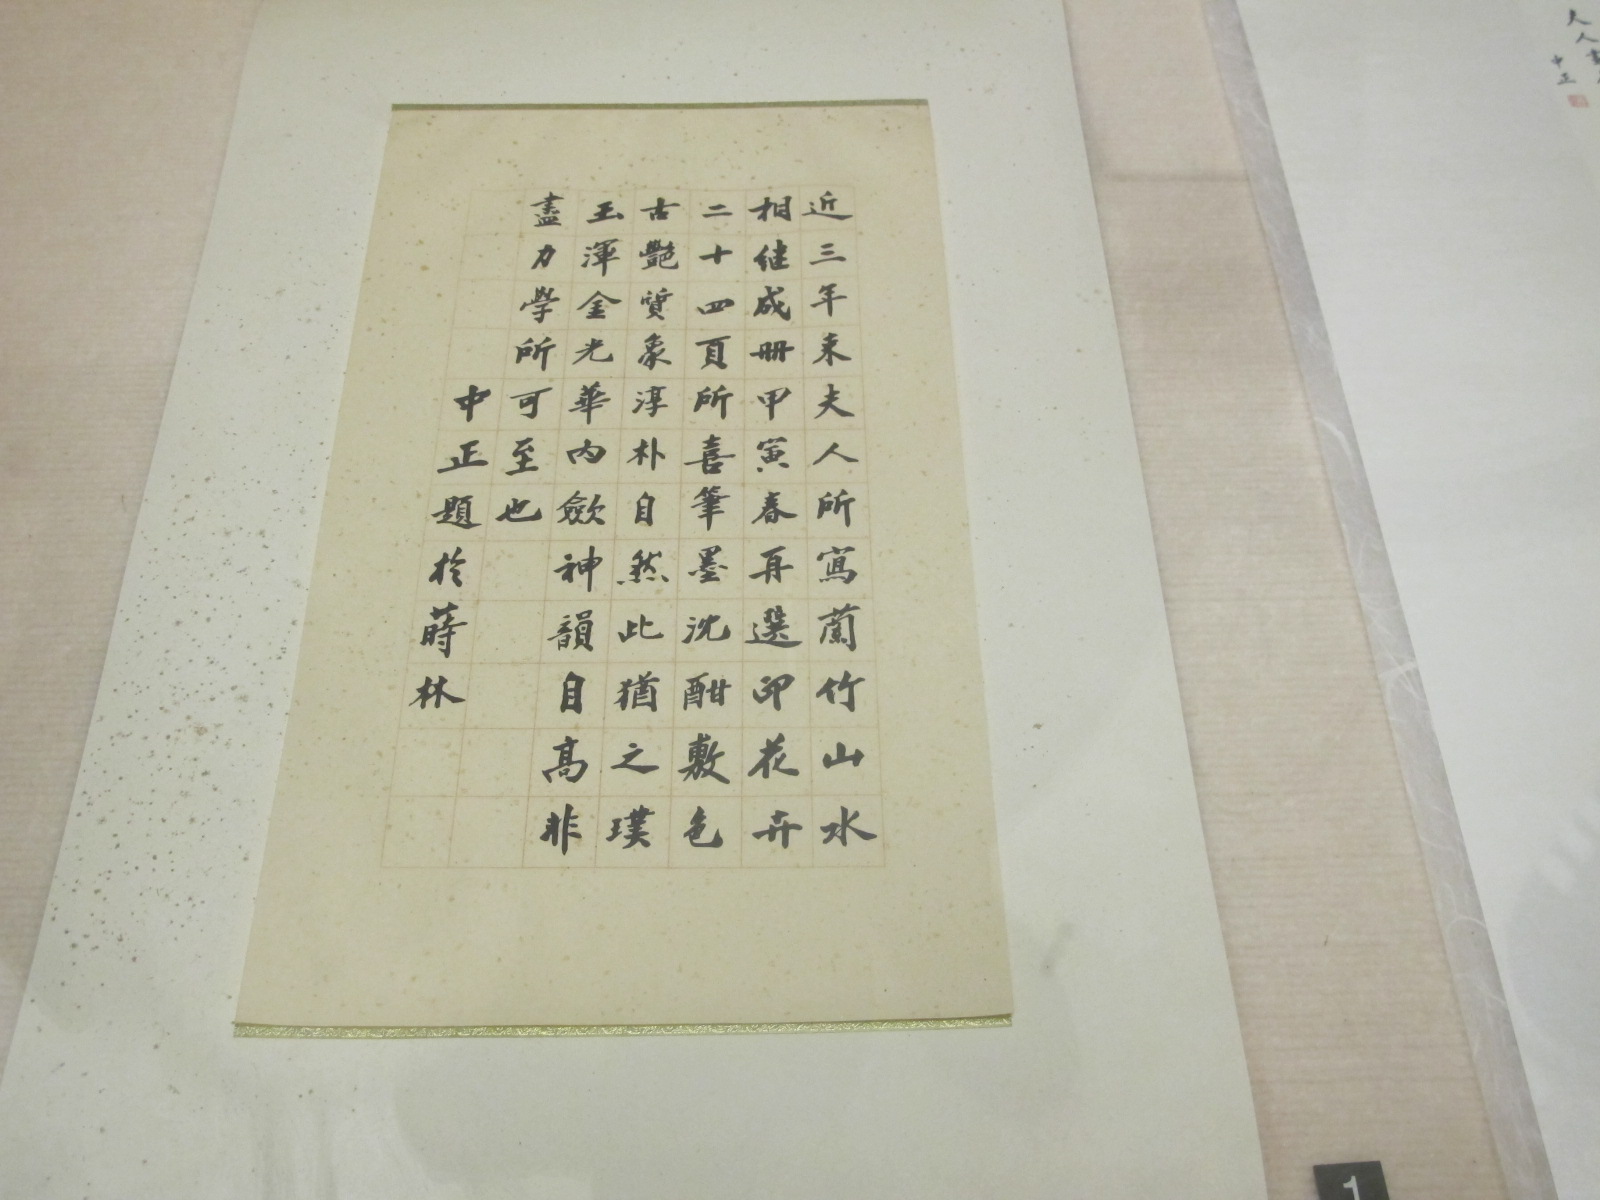 近三年來夫人所寫蘭竹山水
相継成冊甲寅春再選印花卉
二十四頁所喜筆墨沈酣敷色
古艷質象淳朴自然此猶之璞
玉渾金光華內斂神韻自高非
盡力學所可至也
中正題於蒔林
人人
中正
1